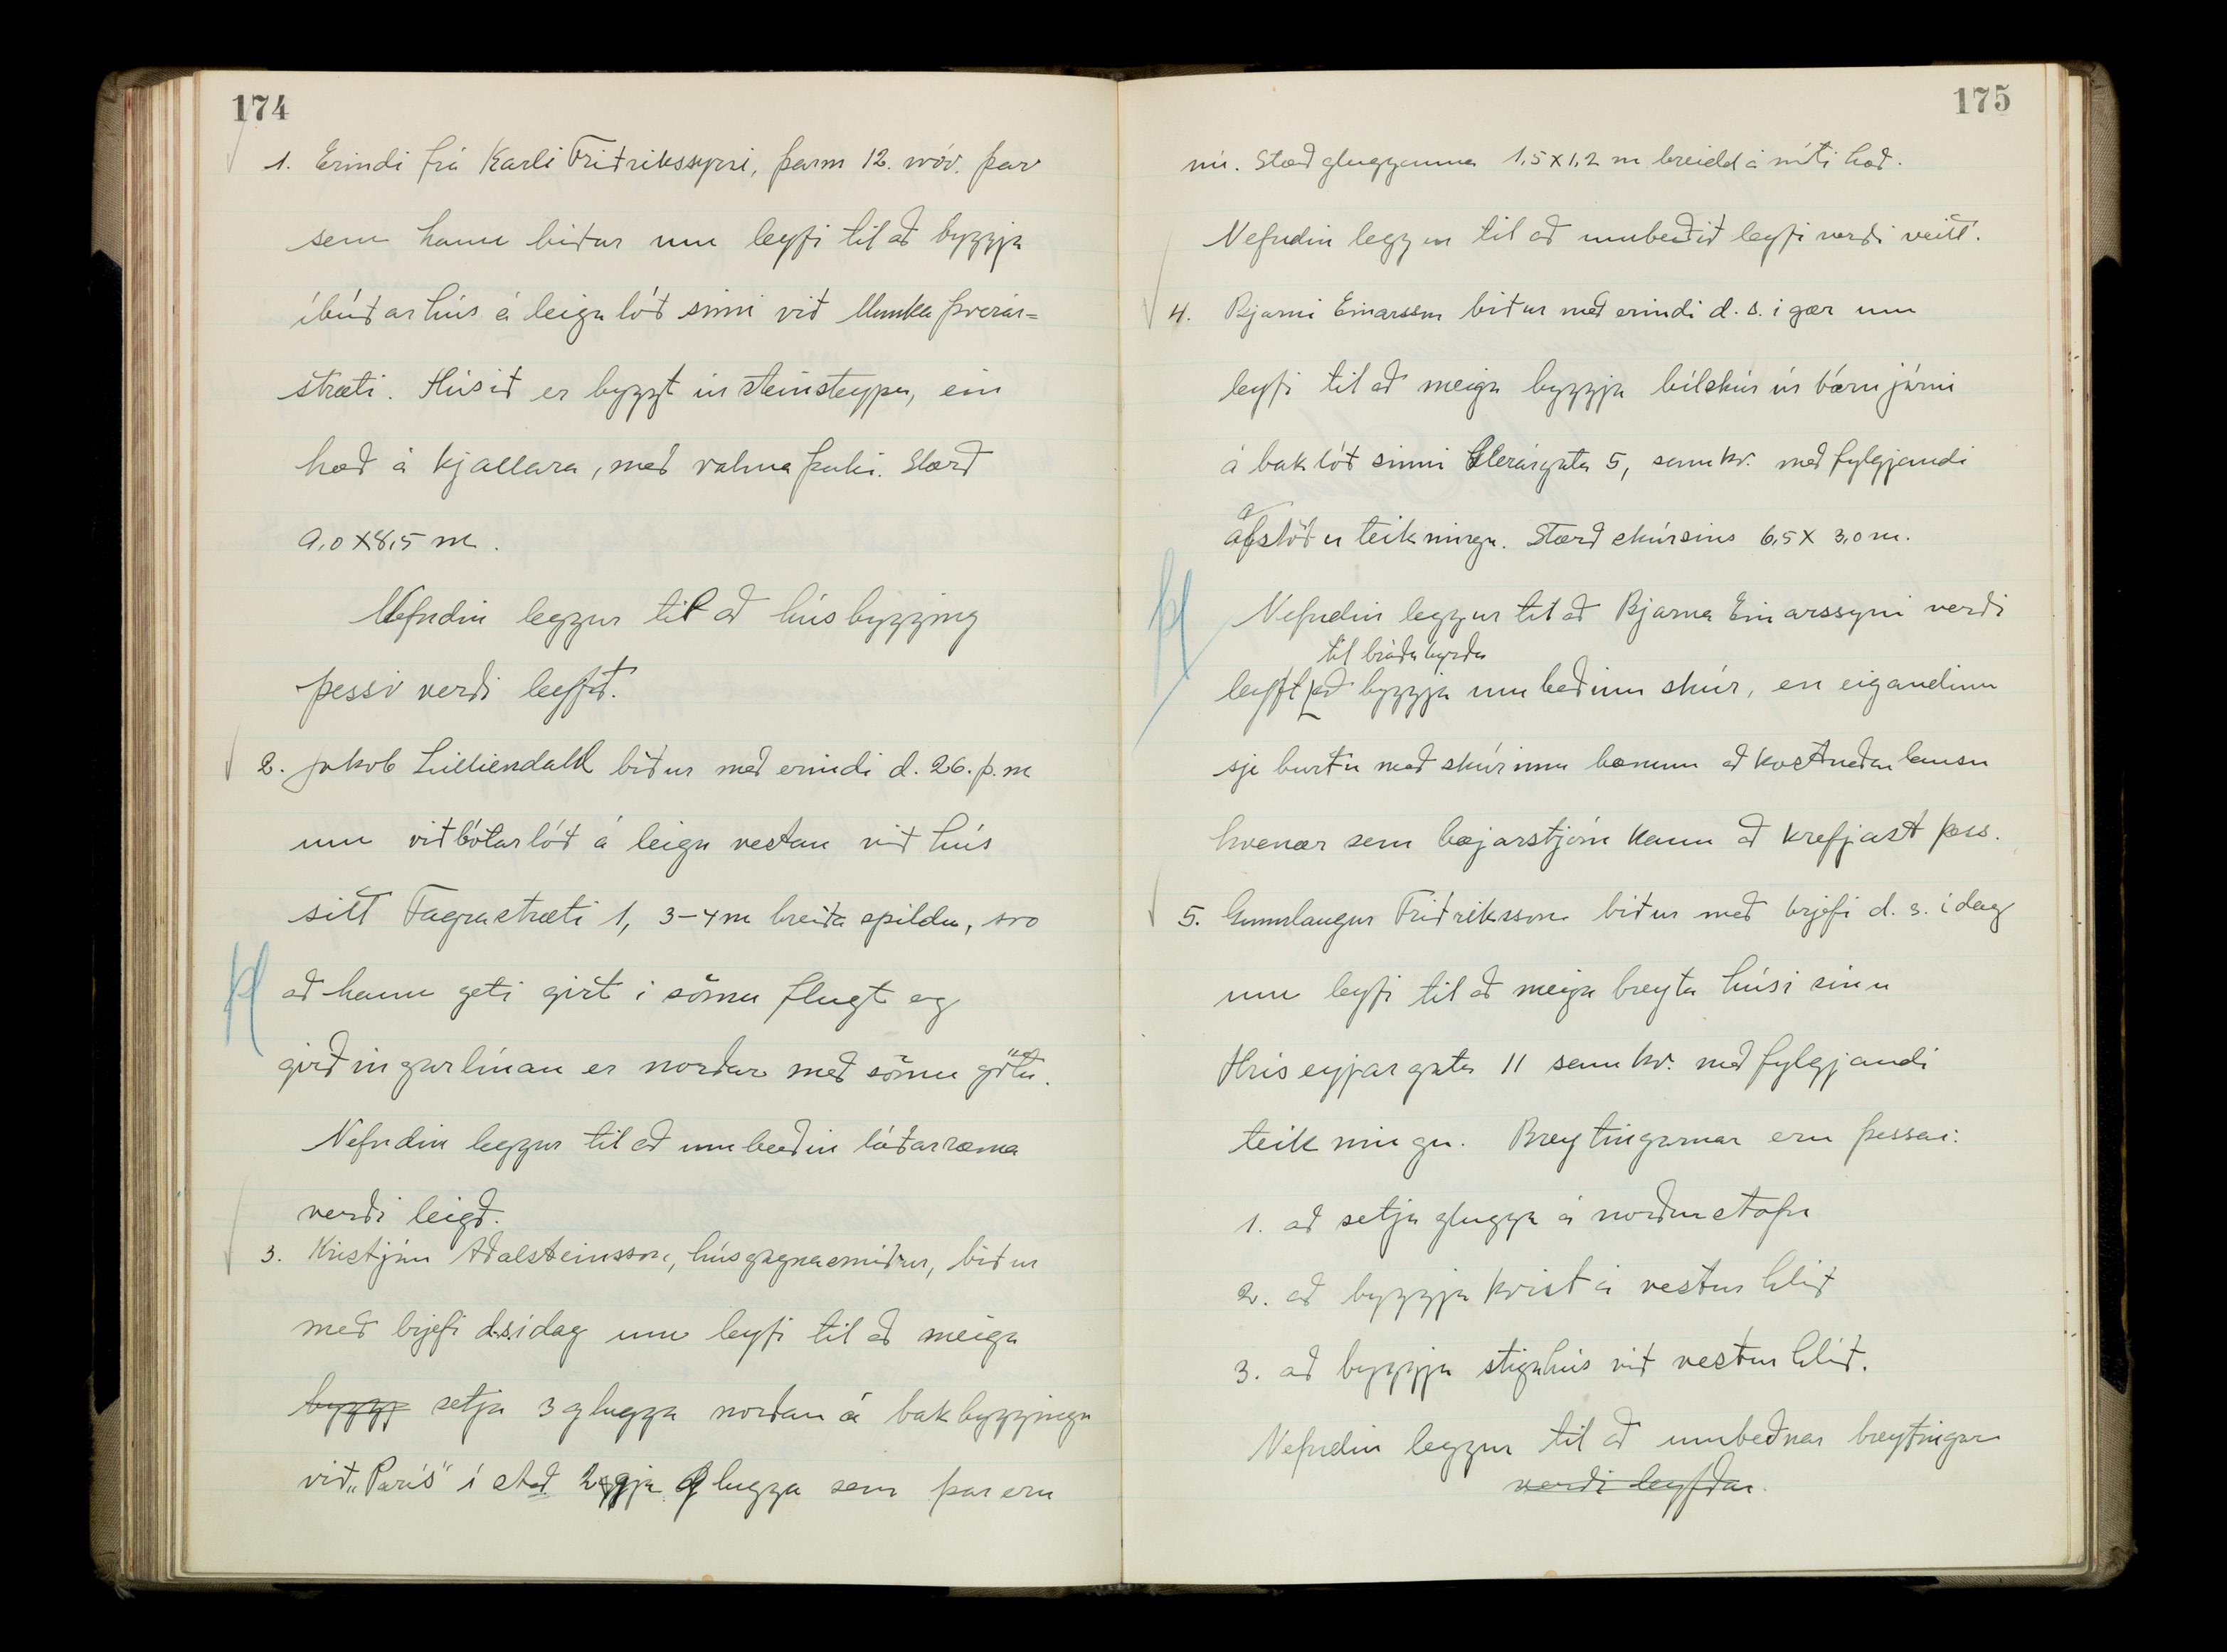 174
1. Erindi frá Karli Friðrikssyni, þarm 12. nóv. þar
sem hann biður um leyfi til að byggja
íbúðarhús á leigulóð sinni við Munkaþverár=
stræti. Húsið er byggt úr steinsteypu, ein
hæð á kjallara, með valmaþaki. Stærð
9,0 x 8,5 m.
Nefndin leggur til að húsbygging
þessi verði leyfð.
2. Jakob Lilliendahl biður með erindi d. 26. þ.m
um viðbótarlóð á leigu vestan við hús
sitt Fagrastræti 1, 3-4 m breiða spildu, svo
að hann geti girt i sömu flugt og
girðingarlínan er norðar með sömu götu.
Nefndin leggur til að umbeðin lóðarræma
verði leigð.
3. Kristján Aðalsteinsson, húsgagnasmiður, biður
með brjefi d.s. í dag um leyfi til að meiga
byggj setja 3 glugga norðan á bakbyggingu
við „París" í stað 2ggja glugga sem þar eru
175
nú. Stærð glugganna 1,5 x 1,2 m breidd á móti hæð.
Nefndin leggur til að umbeðið leyfi verði veitt.
4. Bjarni Einarsson biður með erindi d. s. i gær um
leyfi til að meiga byggja bílskúr úr bárujárni
á baklóð sinni Glerárgata 5, samkv. meðfylgjandi
afstöðuteikningu. Stærð skúrsins 6,5 x 3,0 m.
Nefndin leggur til að Bjarna Einarssyni verði
til bráðabyrða
leyft að byggja umbeðinn skúr, en eigandinn
sje burtu með skúrinn bænum að kostnaðarlausu
hvenær sem bæjarstjórn kann að krefjast þess.
5. Gunnlaugur Friðriksson biður með brjefi d. s. í dag
um leyfi til að meiga breyta húsi sínu
Hríseyjargata 11 samkv. meðfylgjandi
teikningu. Breytingarnar eru þessar:
1. að setja glugga á norðurstofu
2. að byggja kvist á vesturhlið
3. að byggja stigahús við vesturhlið.
Nefndin leggur til að umbeðnar breytingar
verði leyfðar.